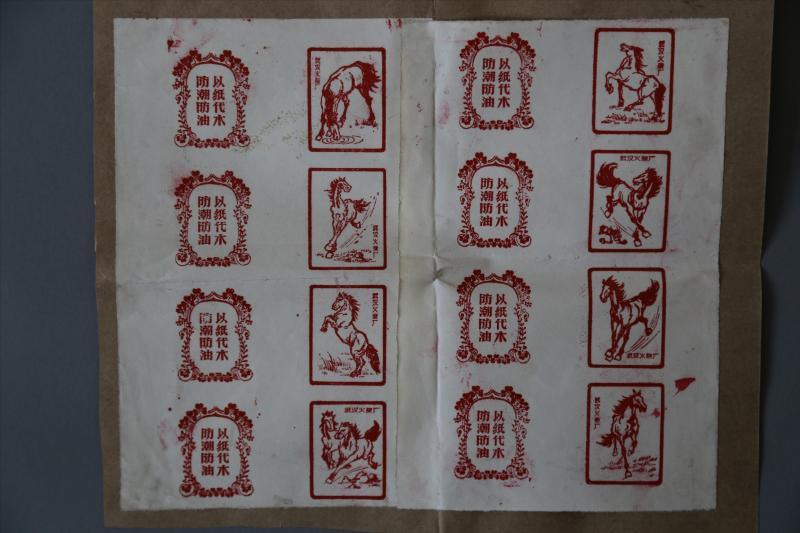 以纸代木
防潮防油
武汉火柴厂
以纸代木
防潮防油
武汉火柴厂
以纸代木
防潮防油
武汉火柴厂
以纸代木
防潮防油
武汉火柴厂
以纸代木
防潮防油
武汉火柴厂
以纸代木
防潮防油
武汉火柴厂
以纸代木
防潮防油
武汉火柴厂
以纸代木
防潮防油
武汉火柴厂